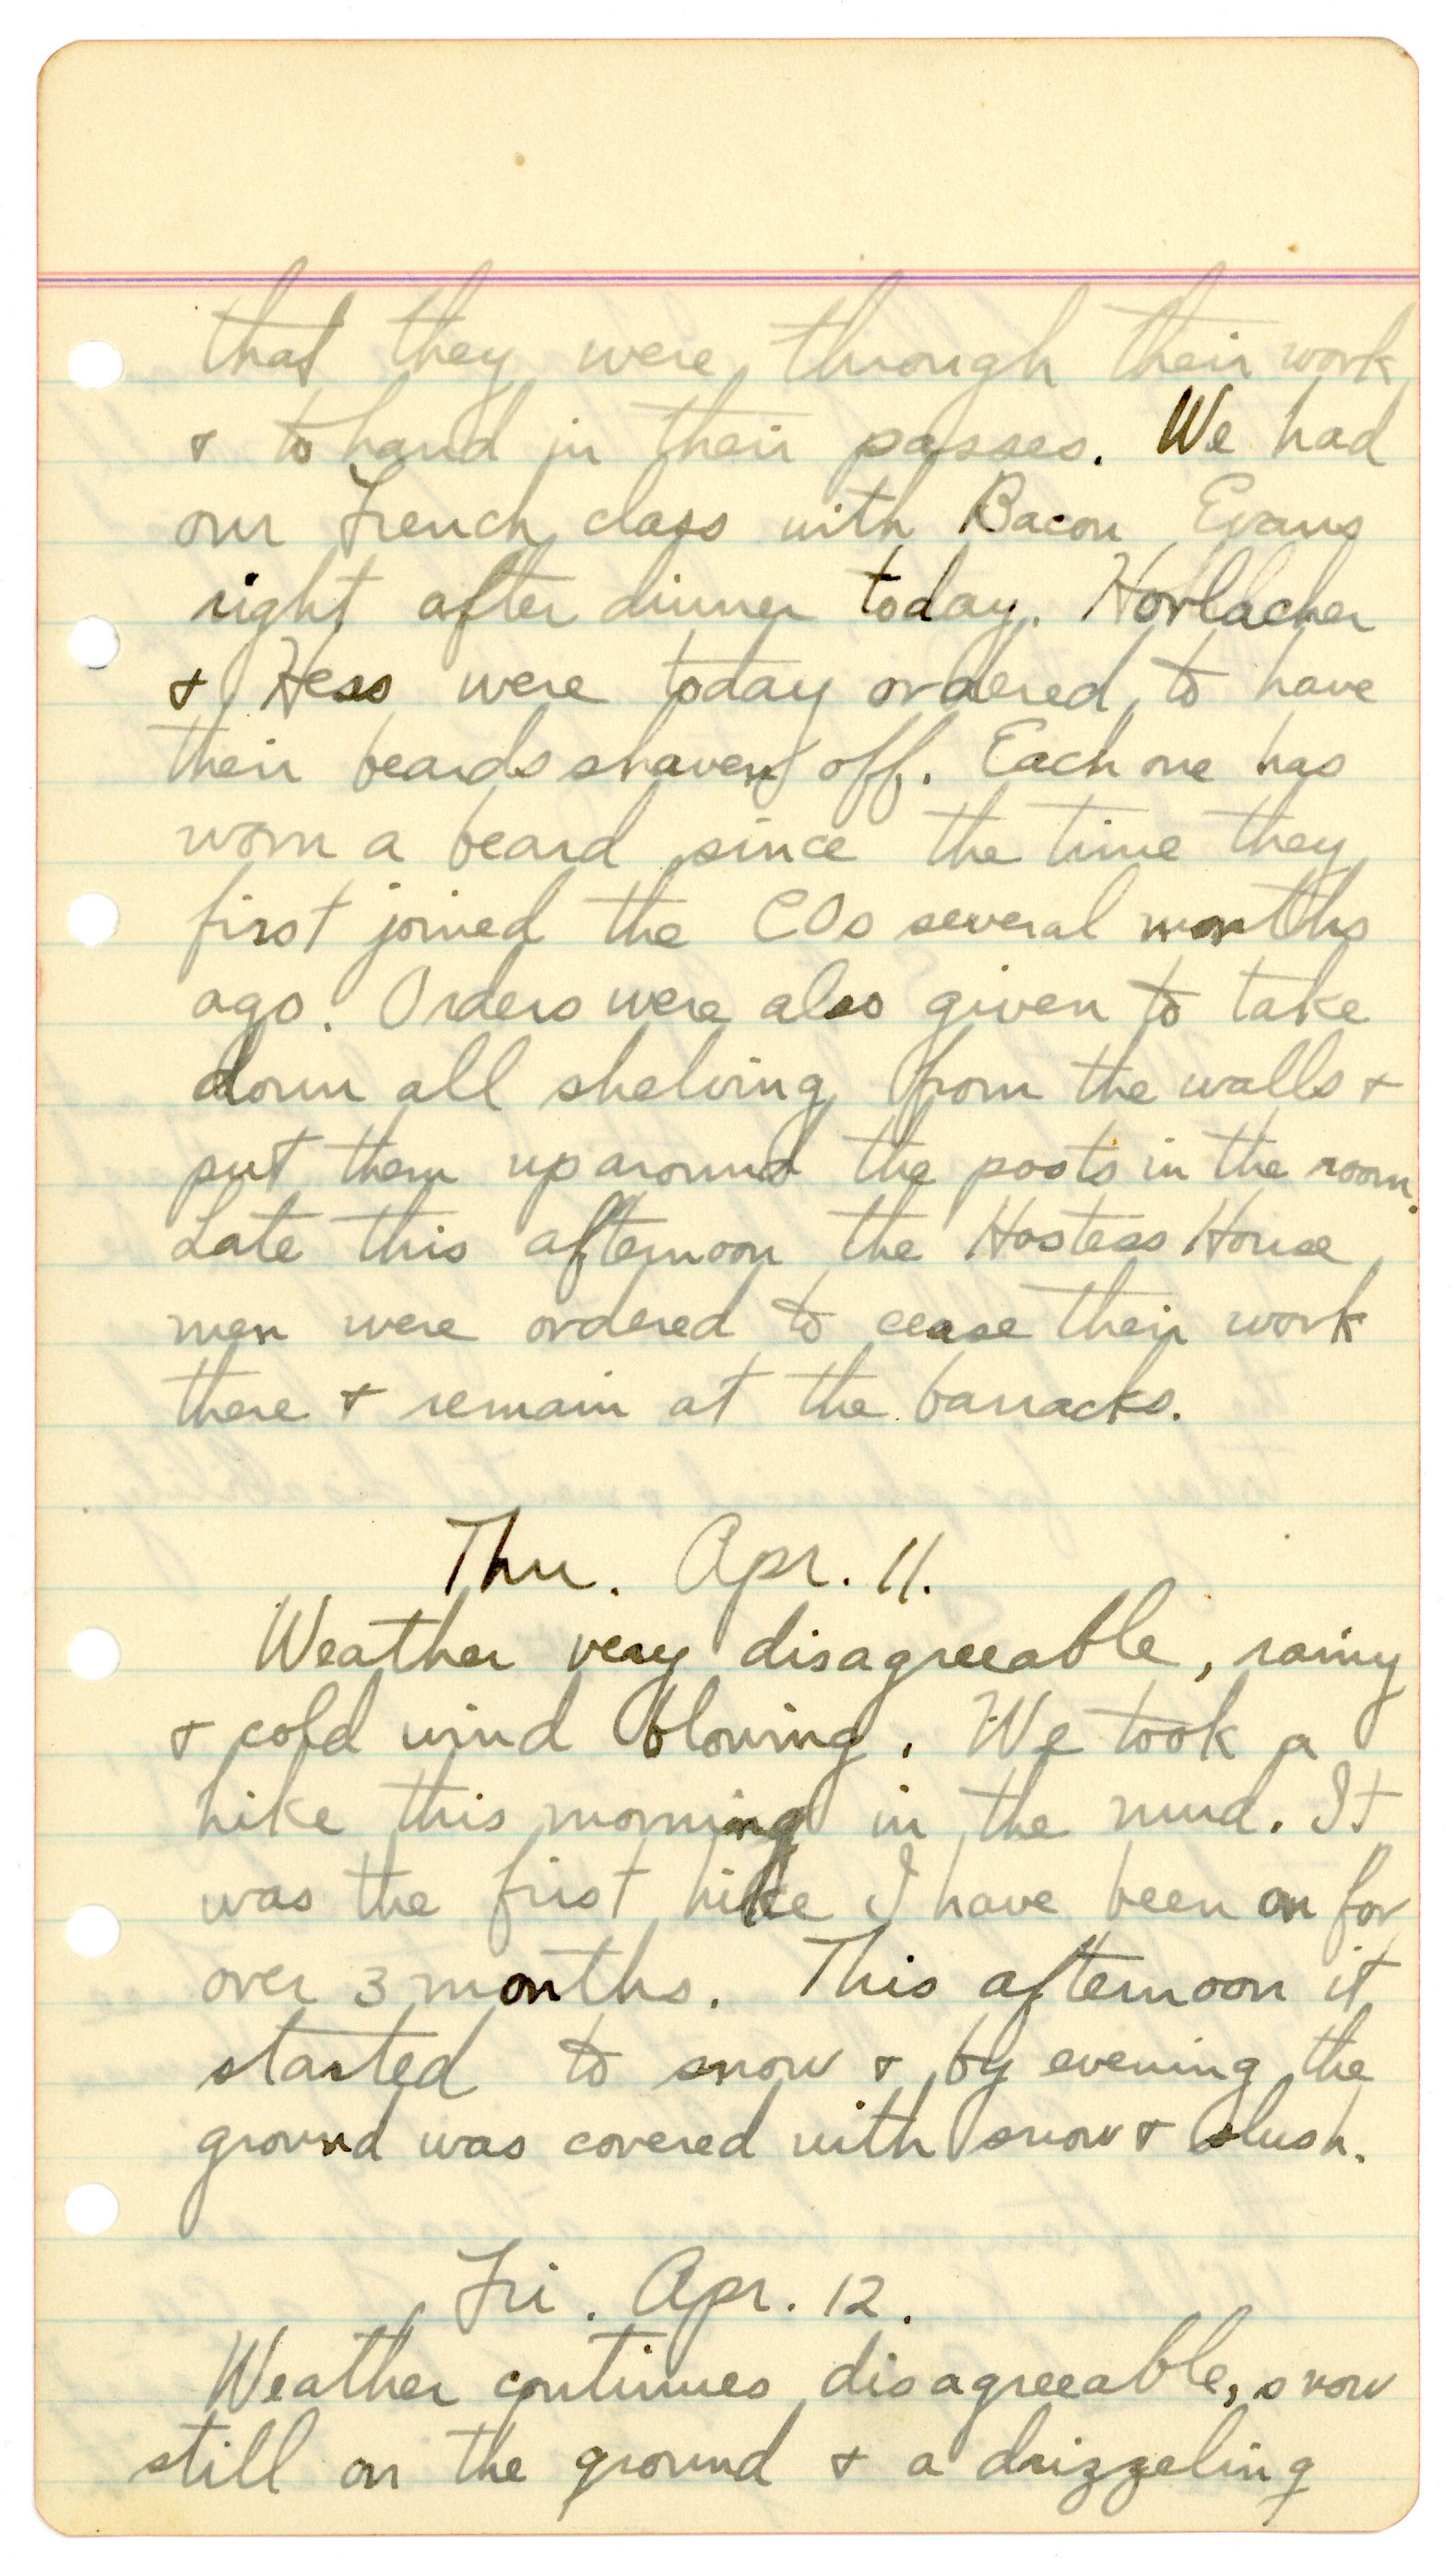 that they were through their work
& to hand in their passes. We had
our French class with Bacon Evans
right after dinner today. Horlacher
& Hess were today ordered to have
their beards shaven off. Each one has
worn a beard since the time they
first joined the COs several months
ago. Orders were also given to take
down all shelving from the walls &
put them up around the posts in the room.
Late this afternoon the Hostess House
men were ordered to cease their work
there & remain at the barracks.
Thu. Apr. 11.
Weather very disagreeable, rainy
& cold wind blowing. We took a
hike this morning in the mud. It
was the first hike I have been on for
over 3 months. This afternoon it
started to snow & by evening the
ground was covered with snow & slush.
Fri. Apr. 12.
Weather continues disagreeable, snow
still on the ground & a drizzeling